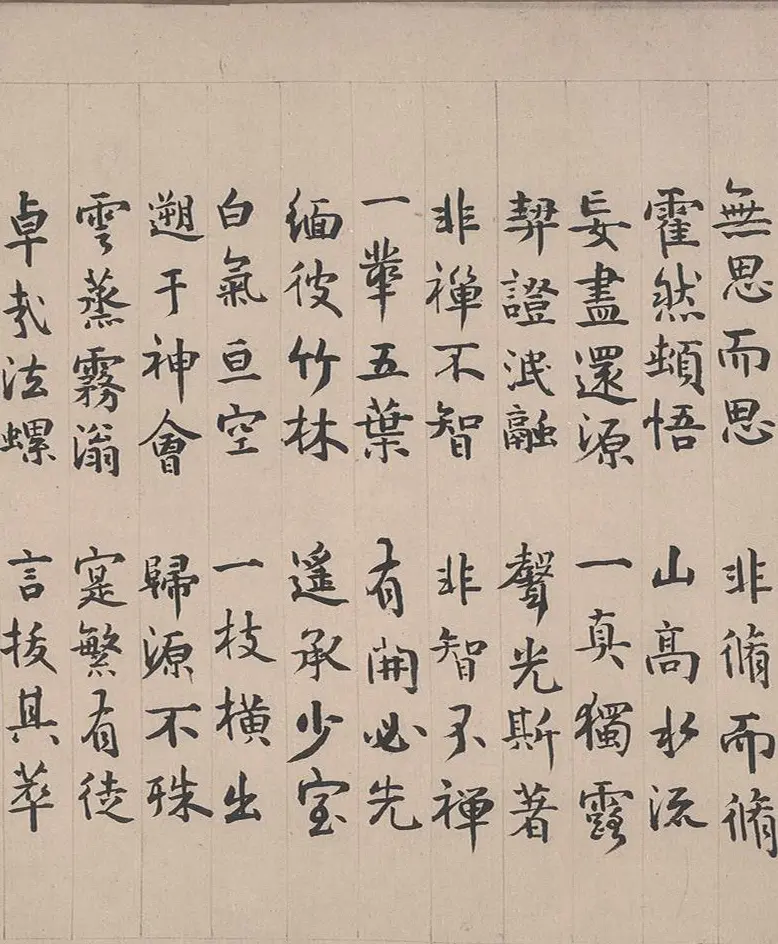 無思而思 非脩而脩
霍然頓悟 山高水流
妄盡還源 一真獨露
契證泯融 聲光斯著
非禪不智 非智不禅
一華五葉 有開必先
緬彼竹林 遥承少室
白氣亘空 一枝横出
遡于神會 歸源不殊
雲蒸霧滃 寔繁有徒
卓哉法螺 言拔其萃